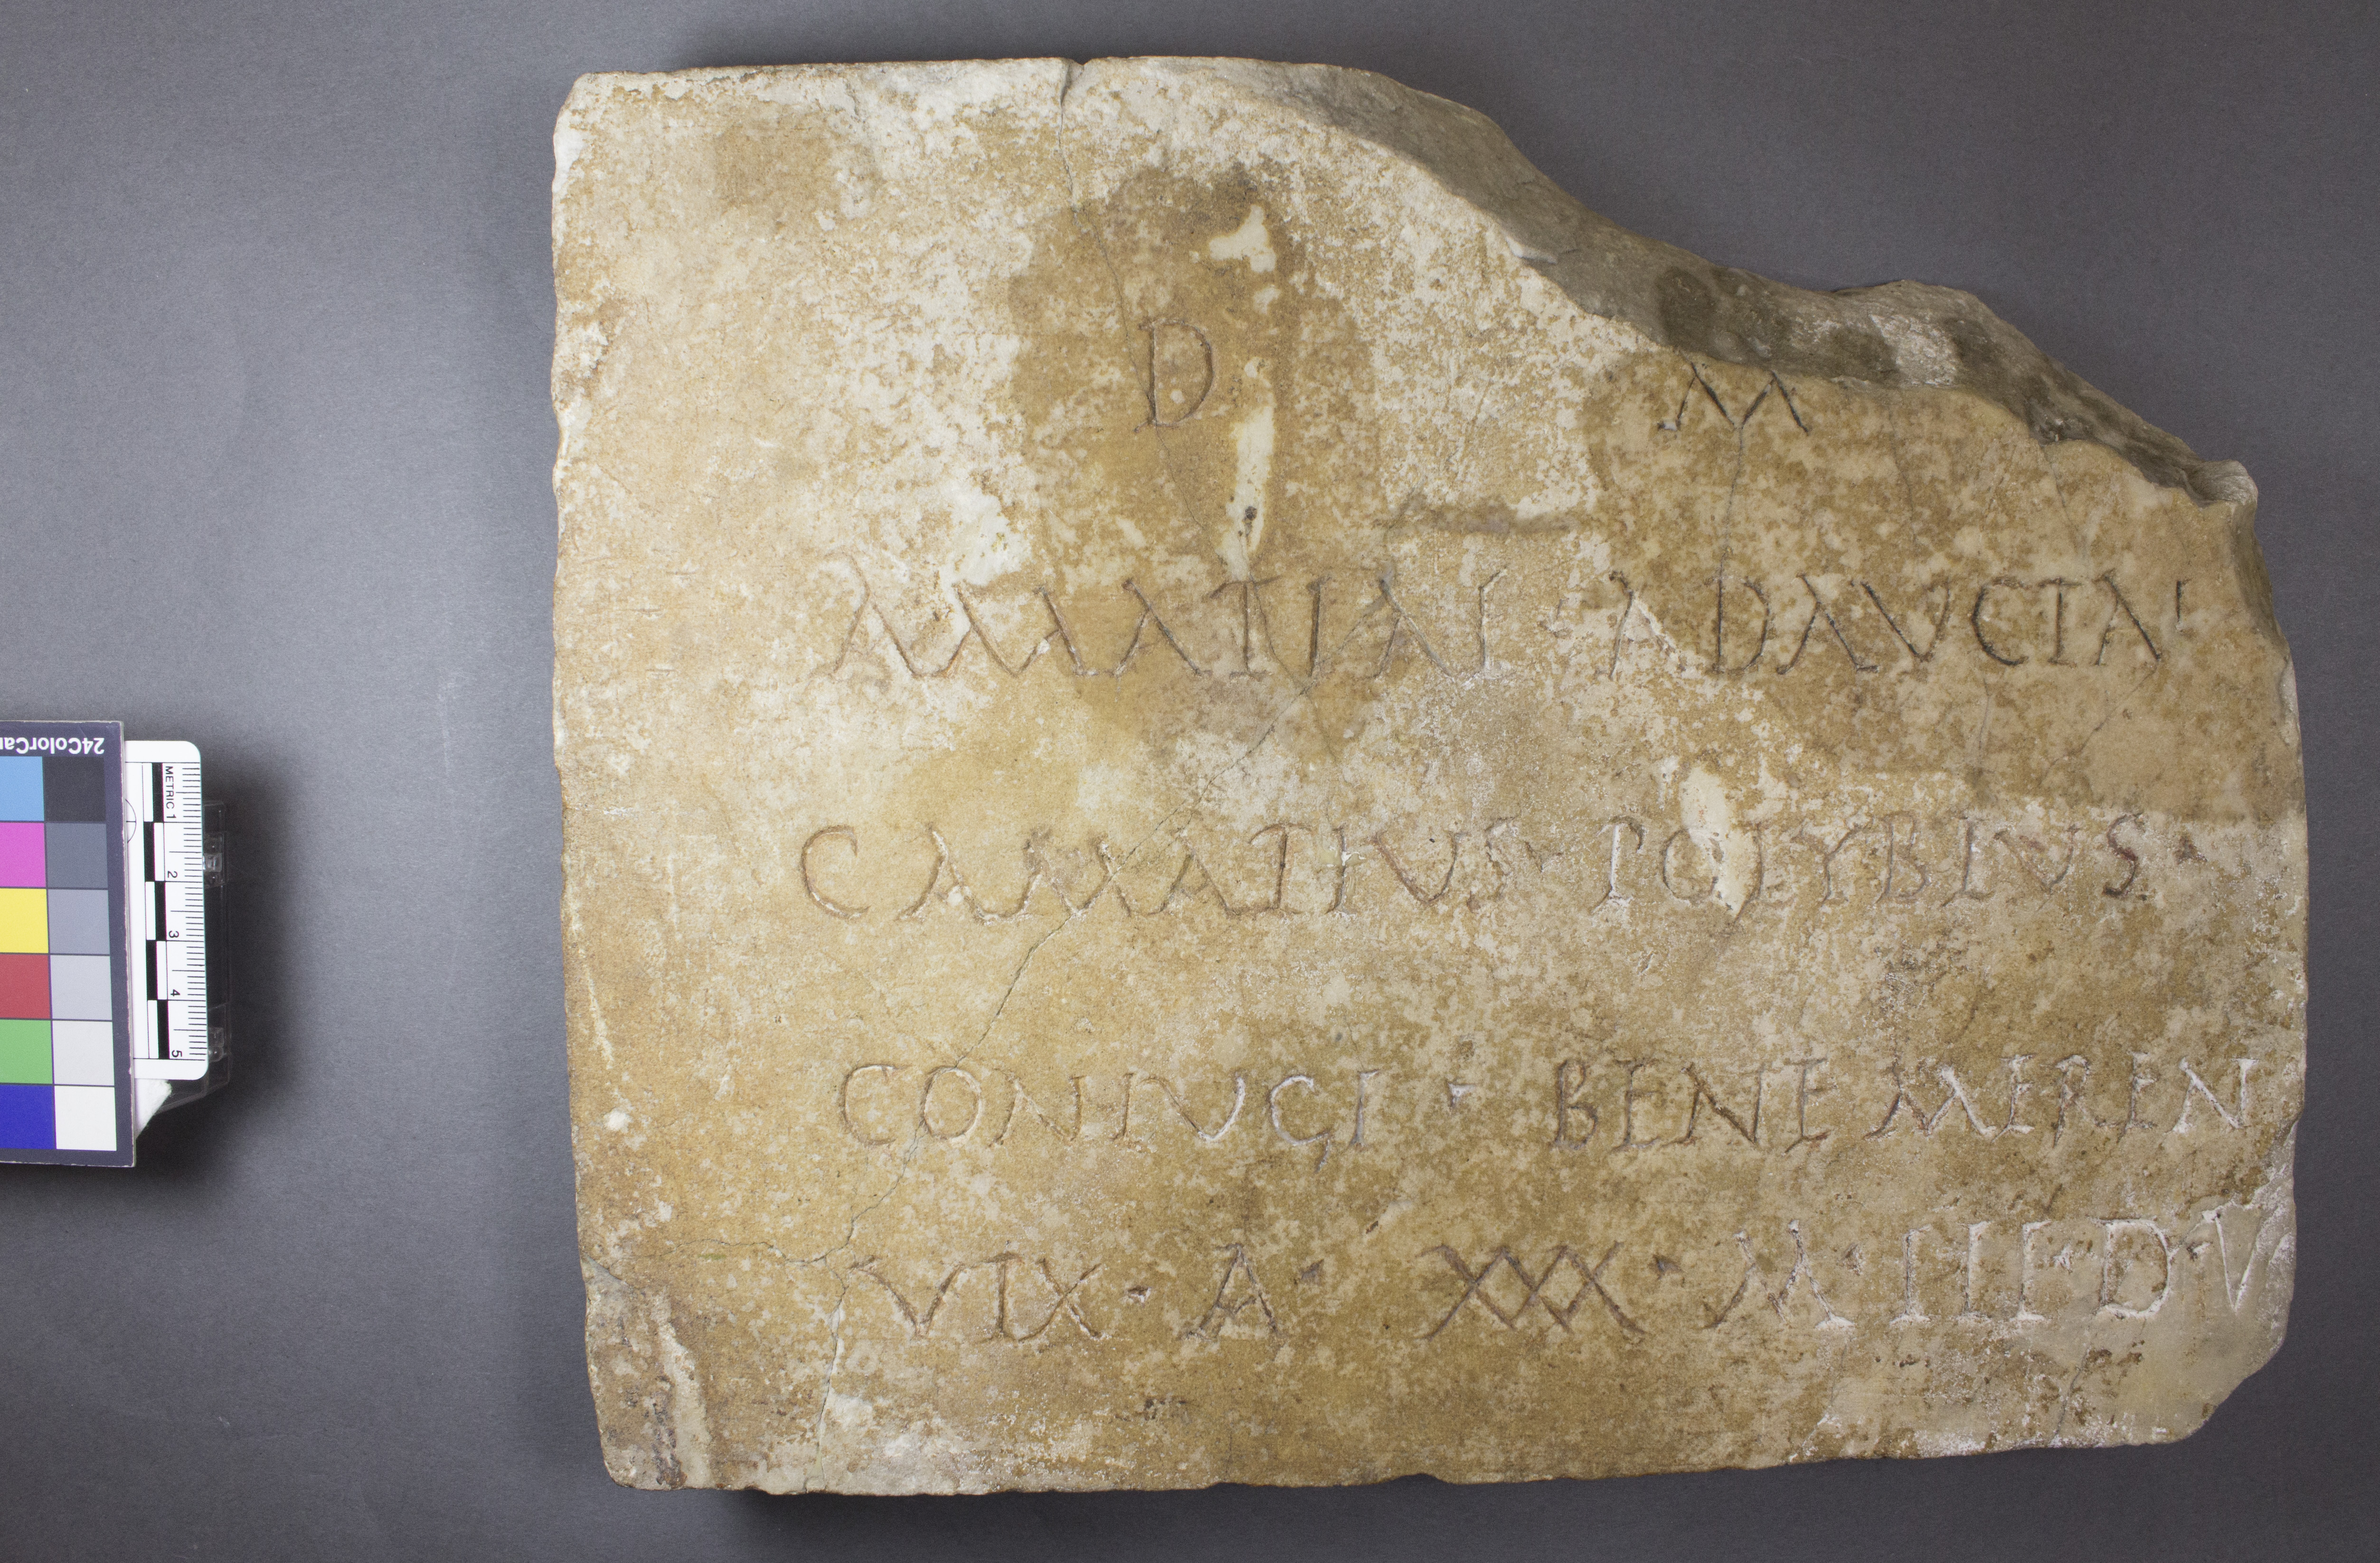 D M
AMATIAE · ADAVCTAE
C AMATIVS · POLYBIVS ·
CONIVGI · BENEMEREN
VIX · A · XXX · M · III · D · V
24ColorCar
METRIC 1
2
3
4
5